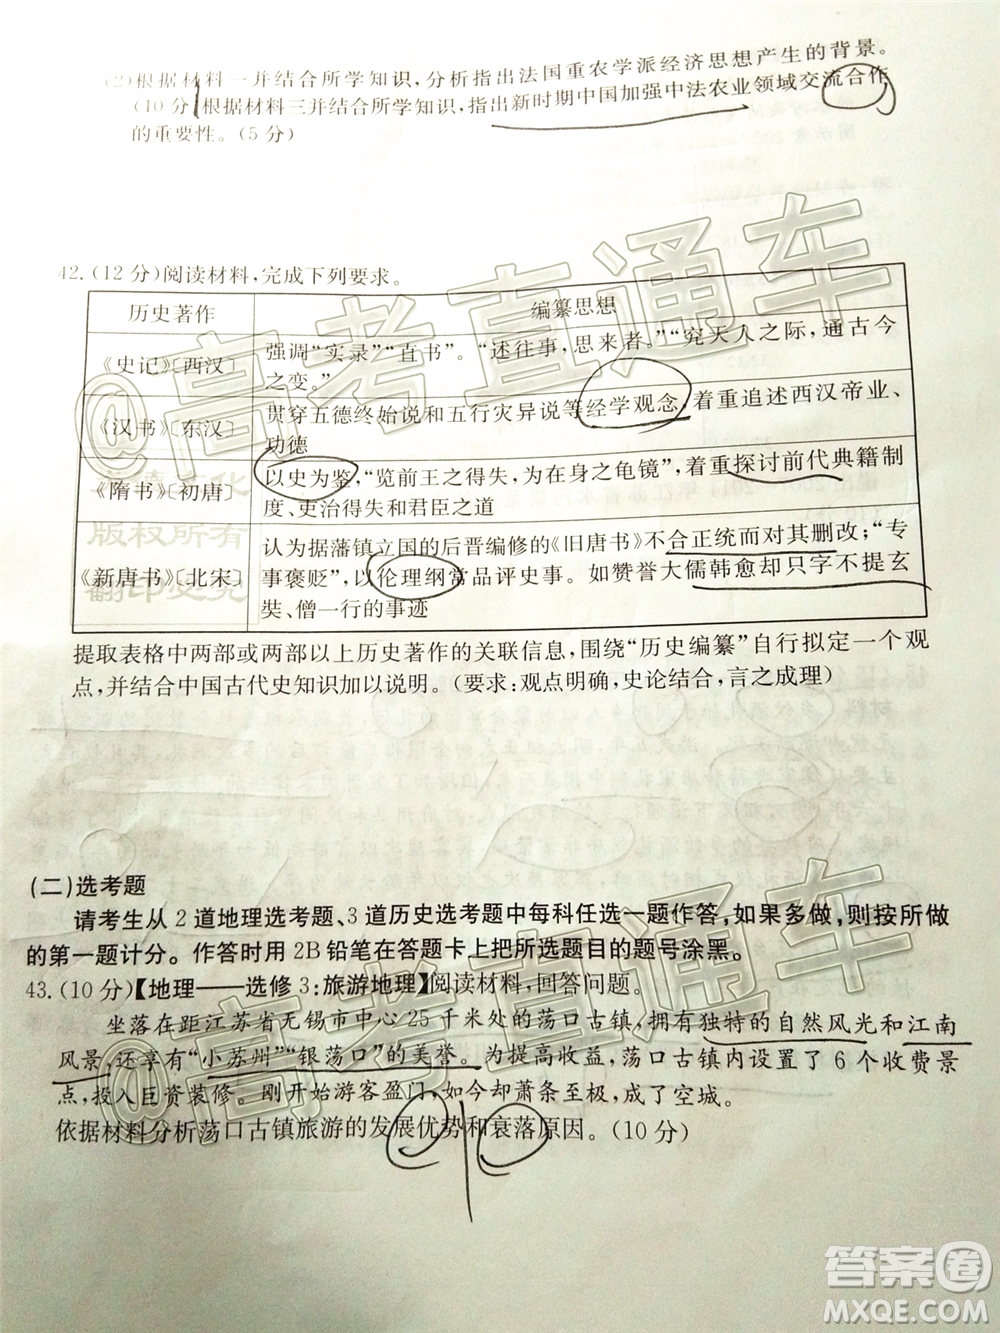 (2)根据材料一并结合所学知识,分析指出法国重农学派经济思想产生的背景。
(10分)根据材料三并结合所学知识,指出新时期中国加强中法农业领域交流合作
的重要性。(5分)
42.(12分)阅读材料,完成下列要求。
历史著作 编纂思想
《史记》〔西汉〕 强调“实录”“直书”。“述往事,思来者。”“究天人之际,通古今
之变。”
《汉书》〔东汉〕 贯穿五德终始说和五行灾异说等经学观念,着重追述西汉帝业、
功德
《隋书》〔初唐〕 以史为鉴,“览前王之得失,为在身之龟镜”,着重探讨前代典籍制
度、吏治得失和君臣之道
版权所有
《新唐书》〔北宋〕 认为据藩镇立国的后晋编修的《旧唐书》不合正统而对其删改;“专
事褒贬”,以伦理纲常品评史事。如赞誉大儒韩愈却只字不提玄
奘、僧一行的事迹
翻印必究
提取表格中两部或两部以上历史著作的关联信息,围绕“历史编纂”自行拟定一个观
点,并结合中国古代史知识加以说明。(要求:观点明确,史论结合,言之成理)
(二)选考题
请考生从2道地理选考题、3道历史选考题中每科任选一题作答,如果多做,则按所做
的第一题计分。作答时用2B铅笔在答题卡上把所选题目的题号涂黑。
43.(10分)【地理——选修3:旅游地理】阅读材料,回答问题。
坐落在距江苏省无锡市中心25千米处的荡口古镇,拥有独特的自然风光和江南
风景,还享有“小苏州”“银荡口”的美誉。为提高收益,荡口古镇内设置了6个收费景
点,投入巨资装修。刚开始游客盈门,如今却萧条至极,成了空城。
依据材料分析荡口古镇旅游的发展优势和衰落原因。(10分)
@高考直通车
@高考直通车
答案圈
MXQE.COM